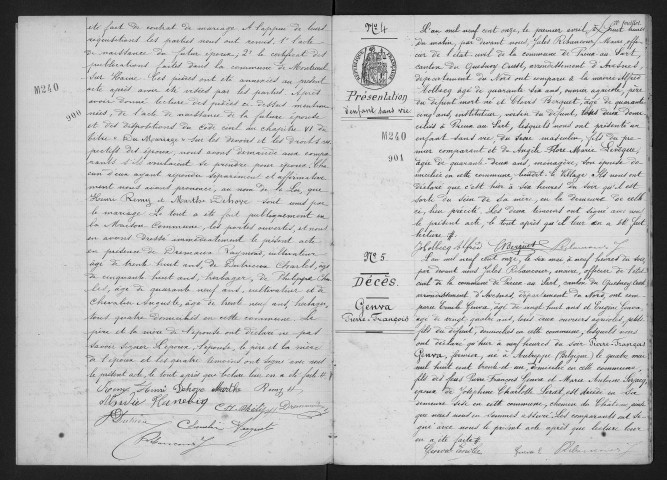 acte fait de contrat de mariage. A l'appui de leurs
réquisitions les parties nous ont remis 1° l'acte
de naissance du futur époux, 2° le certificat des
publications faites dans la commune de
Ces pièces ont été annexées au présent
acte après avoir été visées par les parties. Après
avoir donné lecture des pièces ci-dessus mention-
nées, de l'acte de naissance de la future épouse
et des dispositions du code civil au chapitre VI du
titre "Du Mariage" sur les devoirs et les droits res-
pectifs des époux, nous avons demandé aux compa-
rants s'ils voulaient se prendre pour époux. Cha-
cun d'eux ayant répondu séparément et affirmative-
ment nous avons prononcé, au nom de la Loi, que
Henri Remy et Marthe Dehove sont unis par
le mariage. Le tout a été fait publiquement en
la Maison Commune, les portes ouvertes, et nous
en avons dressé immédiatement le présent acte
en présence de Raymond, cultivateur
âgé de trente huit ans, de Charles, âgé
de cinquante huit ans, herbager, de Char-
les, âgé de quarante neuf ans, cultivateur et de
Auguste, âgé de trente neuf ans, herbager
tous quatre domiciliés en cette commune. Le
père et la mère de l'épouse ont déclaré ne pas
savoir signer. L'époux, l'épouse, le père et la mère
de l'époux et les quatre témoins ont signé avec nous
le présent acte, le tout après que lecture leur en a été faite
Remy Henri Dehove Marthe Remy H
M240
900
N° 4
Présentation
d'enfant sans vie
M240
901
N° 5
Décès.
Genva
Pierre-François
L'an mil neuf cent onze, le premier avril, à huit heures
du matin, par devant nous, Jules Ribaucour, Maire offi-
cier de l'état civil de la commune de Preux au Sart,
canton du Quesnoy Ouest, arrondissement d'Avesnes,
département du Nord ont comparu à la mairie Alfred
âgé de quarante six ans, ouvrier agricole, père
du défunt mort né et Clovis Berquet, âgé de quarante
cinq ans, instituteur, voisin du défunt, tous deux domi-
ciliés à Preux au Sart, lesquels ils nous ont présenté un
enfant sans vie du sexe masculin, fils du pre-
mier comparant et de Angèle Flore Marie Levêque,
âgée de quarante deux ans, ménagère, son épouse do-
miciliée en cette commune, lieudit le Village. Ils nous ont
déclaré que c'est hier à six heures du soir qu'il est
sorti du sein de sa mère, en la demeure de celle
ci, lieu précité. Les deux témoins ont signé avec nous
le présent acte, le tout après qu'il leur en a été fait
lecture.
Alfred CBerquet Ribaucour J
L'an mil neuf cent onze, le six mai à neuf heures du
par devant nous Jules Ribaucour, maire, officier de l'état
civil de la commune de Preux au Sart, canton du Quesnoy Ouest,
arrondissement d'Avesnes, département du Nord, ont com-
paru Emile Genva, âgé de vingt huit ans et Eugène Genva,
âgé de vingt quatre ans, tous deux ouvriers agricoles, petits
fils du défunt, domiciliés en cette commune, lesquels nous
ont déclaré qu'hier à neuf heures du soir Pierre-François
Genva, fermier, né à (Belgique) le quatre mai
mil huit cent trente et un, domicilié en cette commune,
fils des feus Pierre François Genva et Marie
époux de Joséphine Charlotte est décédé en sa
demeure, sise en cette commune, chemin du Château, ainsi
que nous nous en sommes assuré. Les comparants ont si-
gné avec nous le présent acte après que lecture leur
en a été faite.
Genva Emile Genva E Ribaucour J